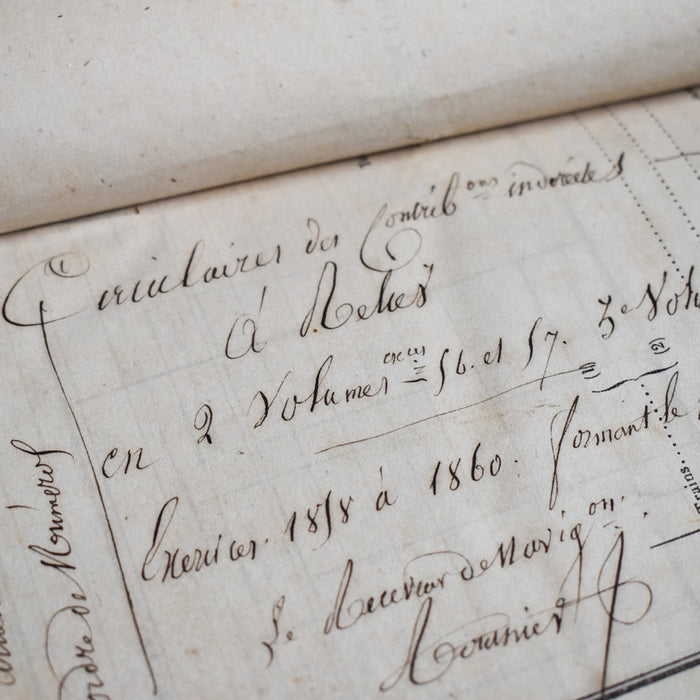 Circulaires des Contrib.ons indirectes
à Relier
en 2 Volumes exces 56. et 57. 3e Volu
Exercices. 1858 à 1860. formant le
Le Receveur de Navig.on.
Mounier
ordre de Numéros